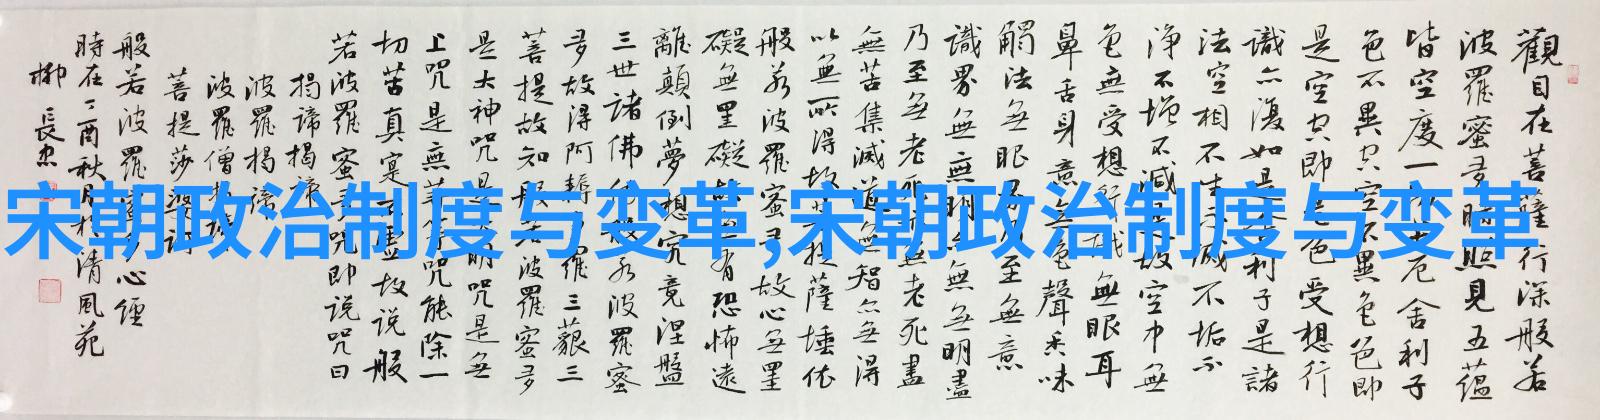 宋朝政治制度与变革,宋朝政治制度与变革
觀自在菩薩行深般若
波羅蜜多時照見五蘊
皆空度一切苦厄舍利子
色不異空空不異色色即
是空空即是色受想行
識亦復如是舍利子是諸
法空相不生不滅不垢不
淨不增不減是故空中無
色無受想行識無眼耳
鼻舌身意無色聲香味
觸法無眼界乃至無意
識界無無明亦無無明盡
乃至無老死亦無老死盡
無苦集滅道無智亦無得
以無所得故菩提薩埵依
般若波羅蜜多故心無罣
礙無罣礙故無有恐怖遠
離顛倒夢想究竟涅盤
三世諸佛依般若波羅蜜
多故得阿耨多羅三藐三
菩提故知般若波羅蜜多
是大神咒是大明咒是無
上咒是無等等咒能除一
切苦真實不虛故说般
若波羅蜜多咒即说咒曰
揭諦揭諦
波羅揭諦
波羅僧揭諦
菩提莎婆訶
般若波羅蜜多心經
時在丁酉秋月於清風苑
柳長忠